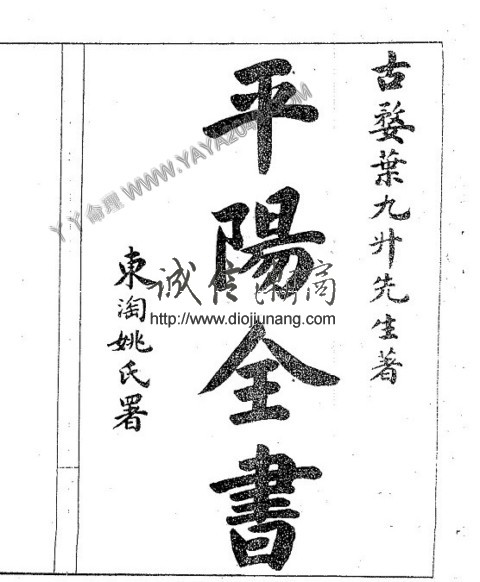 古婺葉九升先生著
平陽全書
東淘姚氏署
丫丫命理 WWW.YAYA204.COM
http://www.diojiunang.com